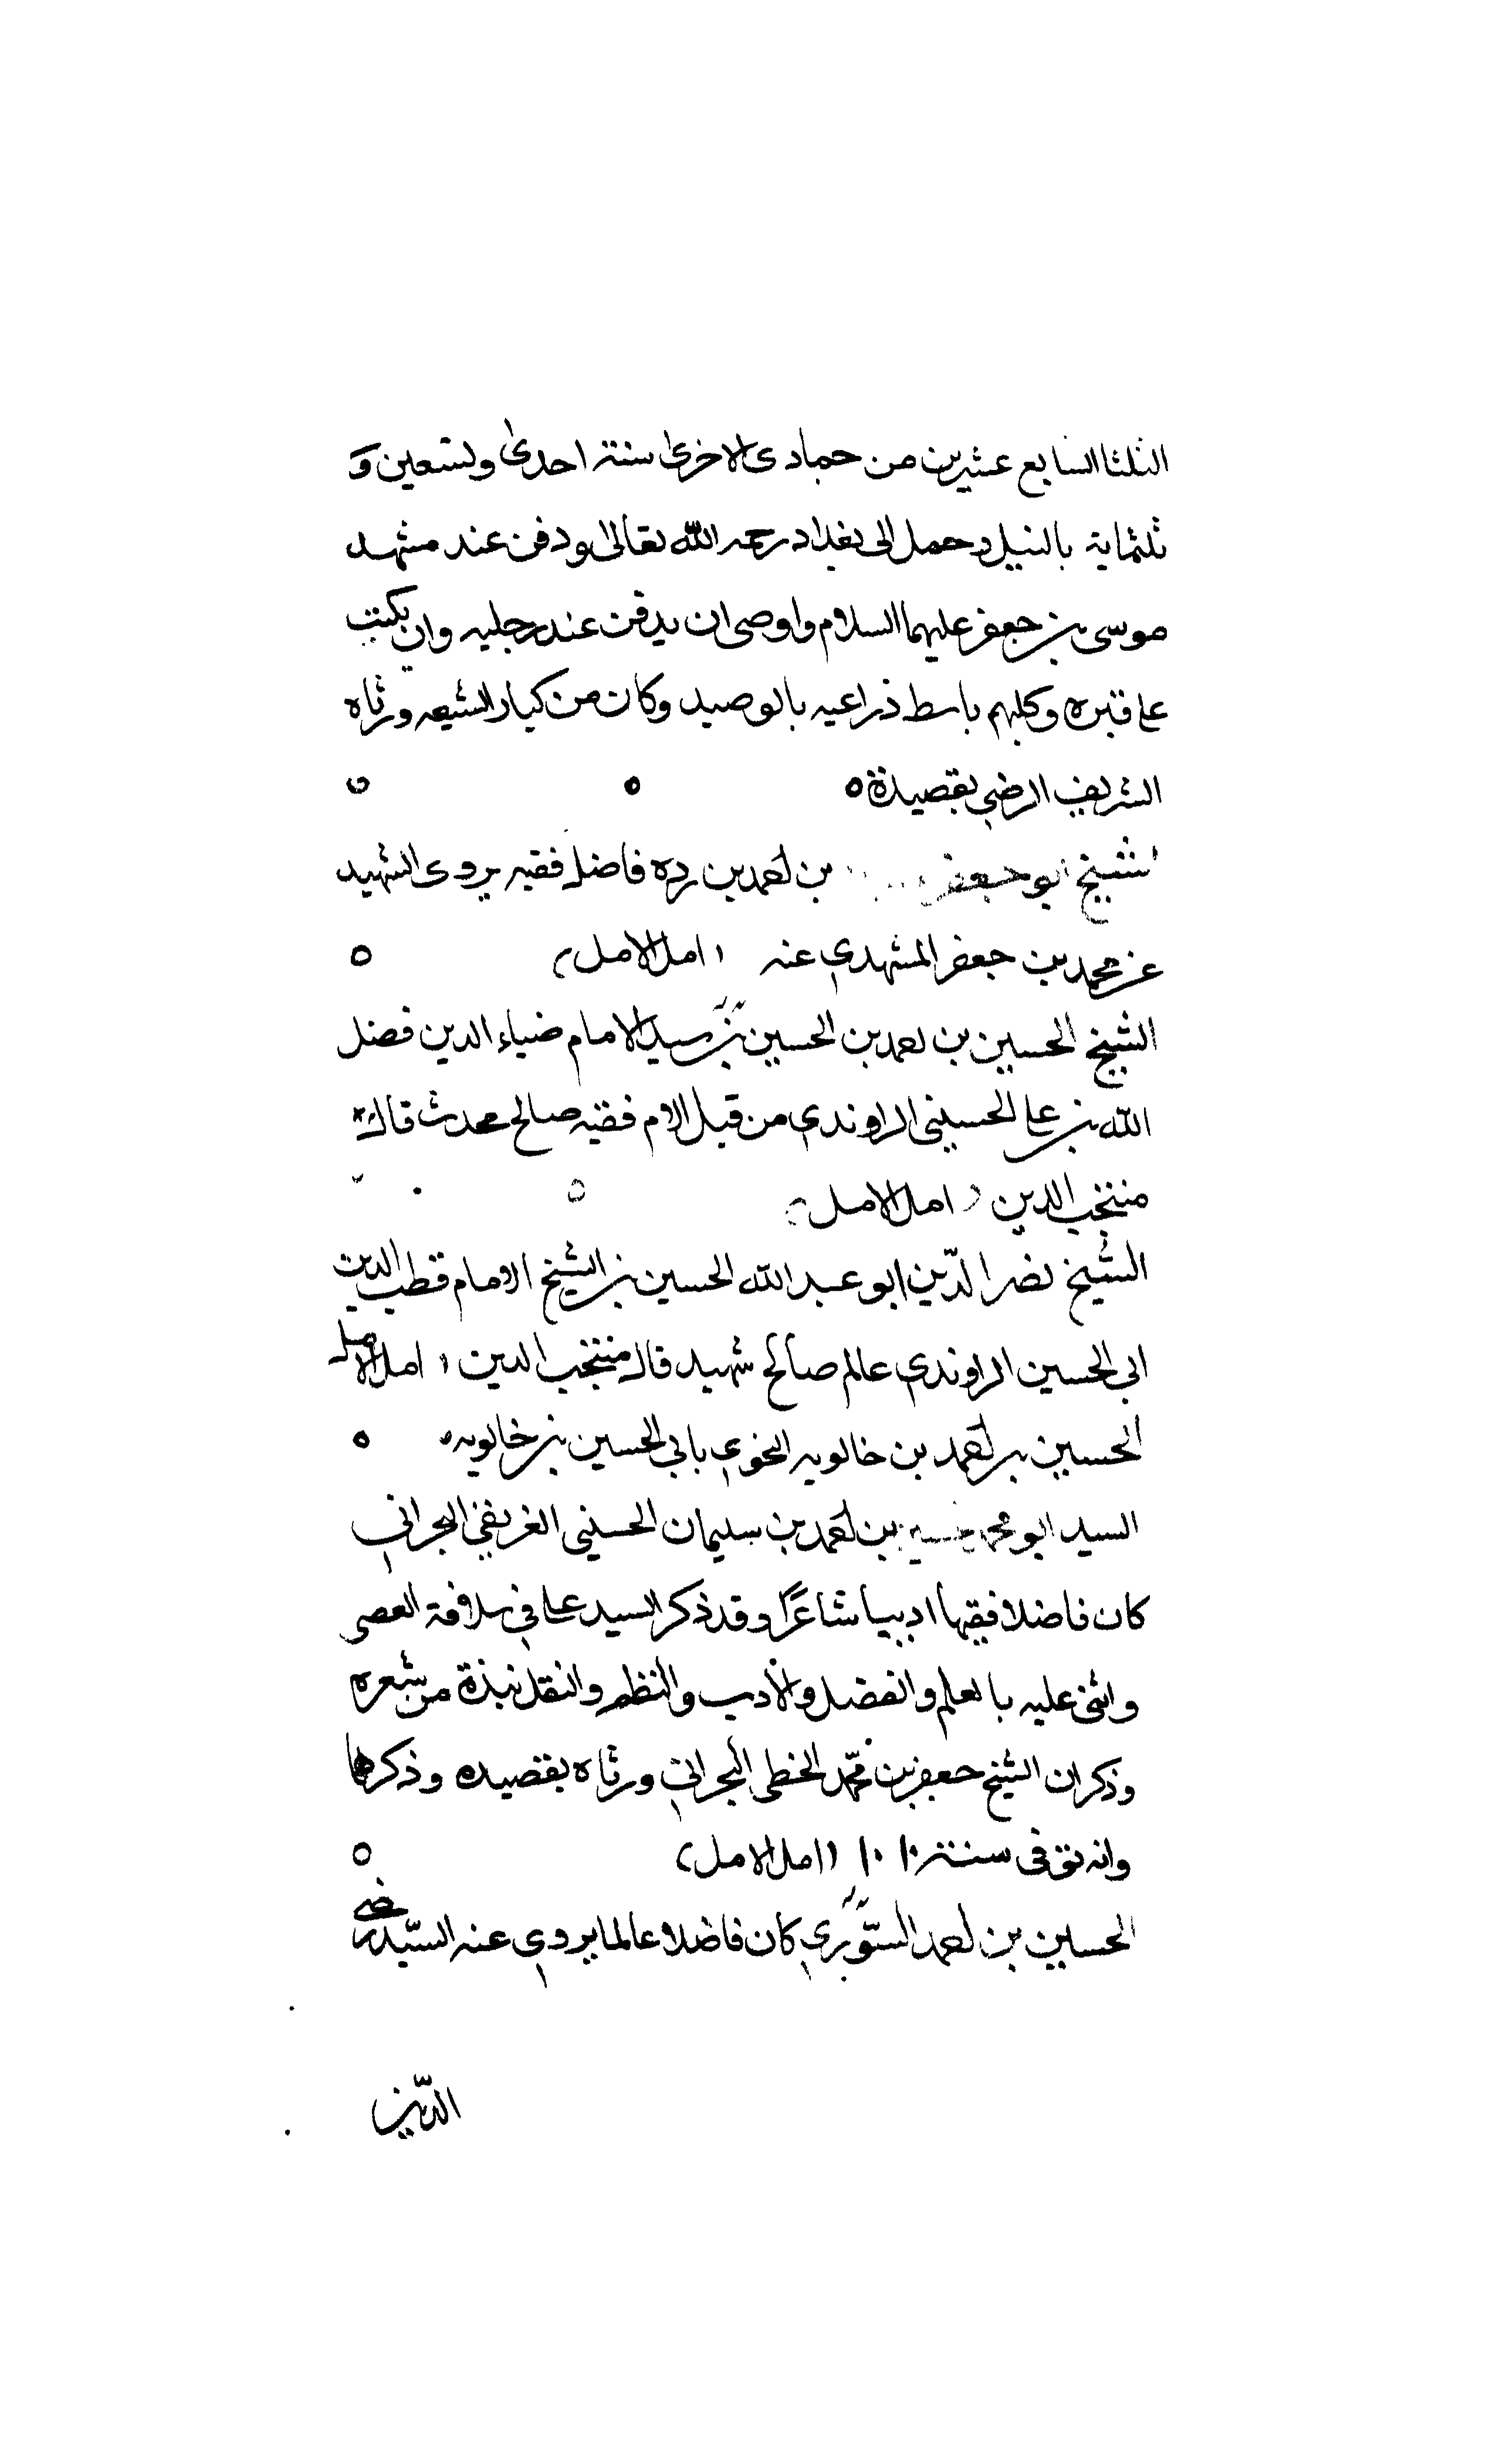 الثلثا السابع عشرين من جمادى الاخرى سنة احدى وتسعين و
ثلثماية بالنيل وحمل الى بغداد رحمه الله تعالى ودفن عند مشهد
موسى بن جعفر عليهما السلام واوصى ان يدفن عند رجليه وان يكتب
على قبره وكلبهم باسط ذراعيه بالوصيد وكان من كبار الشيعه ورثاه
الشريف الرضي بقصيدة ه ه ه
الشيخ ابو جعفر بن احمد بن رده فاضل فقيه يروى الشهيد
عن محمد بن جعفر المشهدي عنه (امل الامل) ه
الشيخ الحسين بن احمد بن الحسين بن سيد الامام ضياء الدين فضل
الله بن على الحسيني الراوندي من قبل الام فقيه صالح محدث قاله
منتجب الدين (امل الامل) ه
الشيخ نصر الدّين ابو عبد الله الحسين بن الشيخ الامام قطب الدين
ابي الحسين الراوندي عالم صالح شهيد قاله منتجب الدين (امل الامل
الحسين بن احمد بن خالويه النحوي بابي الحسين بن خالويه ه ه
السيد ابو محمد حسين بن احمد بن سليمان الحسيني الغريفي البحراني
كان فاضلا فقيها اديبا شاعرًا وقد ذكر السيد على في سلافة العصر
واثنى عليه بالعلم والفضل والادب والنظم والنقل نبذة من شعره
وذكر ان الشيخ جعفر بن محمّد الخطي البحراني ورثاه بقصيده وذكرها
وانه توفى سنة ١٠١٠ (امل الامل) ه
الحسين بن احمد السّوري كان فاضلا عالما يروي عنه السيّد رضي
الدّين